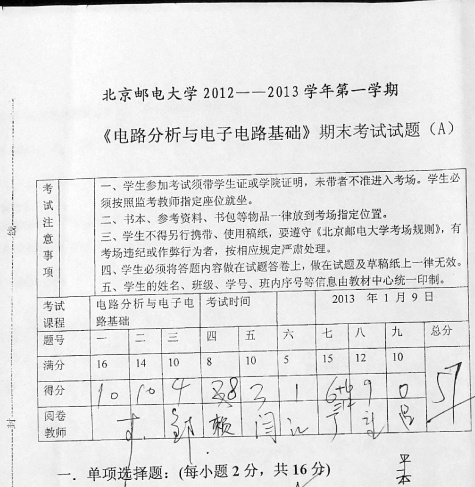 北京邮电大学2012——2013学年第一学期
《电路分析与电子电路基础》期末考试试题（A）
考试注意事项
一、学生参加考试须带学生证或学院证明，未带者不准进入考场。学生必
须按照监考教师指定座位就坐。
二、书本、参考资料、书包等物品一律放到考场指定位置。
三、学生不得另行携带、使用稿纸，要遵守《北京邮电大学考场规则》，有
考场违纪或作弊行为者，按相应规定严肃处理。
四、学生必须将答题内容做在试题答卷上，做在试题及草稿纸上一律无效。
五、学生的姓名、班级、学号、班内序号等信息由教材中心统一印制。
考试课程 电路分析与电子电路基础 考试时间 2013 年 1 月 9 日
题号 一 二 三 四 五 六 七 八 九 总分
满分 16 14 10 8 10 5 15 12 10
得分 10 10 4 8 3 1 6+6 9 0 57
阅卷教师
一．单项选择题：(每小题 2 分，共 16 分)